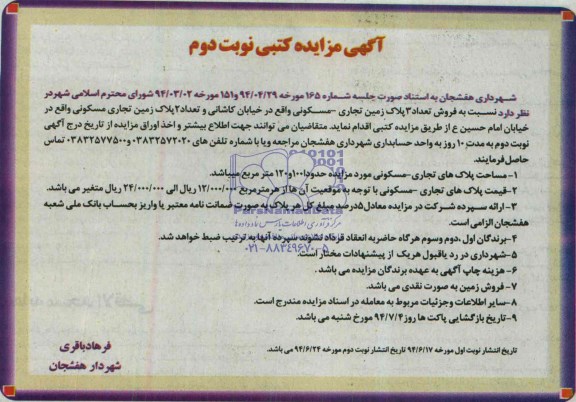 آگهی مزایده کتبی نوبت دوم
شهرداری هفشجان به استناد صورت جلسه شماره ۱۶۵ مورخه ۹۴/۰۴/۲۹ و۱۵۱ مورخه ۹۴/۰۳/۰۲ شورای محترم اسلامی شهردر
نظر دارد نسبت به فروش تعداد۳پلاک زمین تجاری –مسکونی واقع در خیابان کاشانی و تعداد۲پلاک زمین تجاری مسکونی واقع در
خیابان امام حسین ع از طریق مزایده کتبی اقدام نماید. متقاضیان می توانند جهت اطلاع بیشتر و اخذ اوراق مزایده از تاریخ درج آگهی
نوبت دوم به مدت ۱۰ روز به واحد حسابداری شهرداری هفشجان مراجعه ویا با شماره تلفن های ۰۳۸۳۲۵۷۲۰۲۰ و۰۳۸۳۲۵۷۷۵۰۰ تماس
حاصل فرمایند.
۱–مساحت پلاک های تجاری –مسکونی مورد مزایده حدودا۱۰۰و۱۲۰ متر مربع میباشد.
۲–قیمت پلاک های تجاری –مسکونی با توجه به موقعیت آن ها از هرمترمربع ۱۲/۰۰۰/۰۰۰ ریال الی ۲۴/۰۰۰/۰۰۰ ریال متغیر می باشد.
۳– ارائه سپرده شرکت در مزایده معادل۵درصد مبلغ کل هر پلاک به صورت ضمانت نامه معتبر یا واریز بحساب بانک ملی شعبه
هفشجان الزامی است.
۴–برندگان اول ،دوم وسوم هرگاه حاضربه انعقاد قرداد نشوند سپرده آنها به ترتیب ضبط خواهد شد.
۵–شهرداری در رد یاقبول هریک از پیشنهادات مختار است.
۶– هزینه چاپ آگهی به عهده برندگان مزایده می باشد.
۷– فروش زمین به صورت نقدی می باشد.
۸–سایر اطلاعات وجزئیات مربوط به معامله در اسناد مزایده مندرج است.
۹–تاریخ بازگشایی پاکت ها روز ۹۴/۷/۴ مورخ شنبه می باشد.
تاریخ انتشار نوبت اول مورخه ۹۴/۶/۱۷ تاریخ انتشار نوبت دوم مورخه ۹۴/۶/۲۴ می باشد.
فرهادباقری
شهردار هفشجان
ParsNamadData
۰۲۱-۸۸۳۴۹۶۷۰-۵